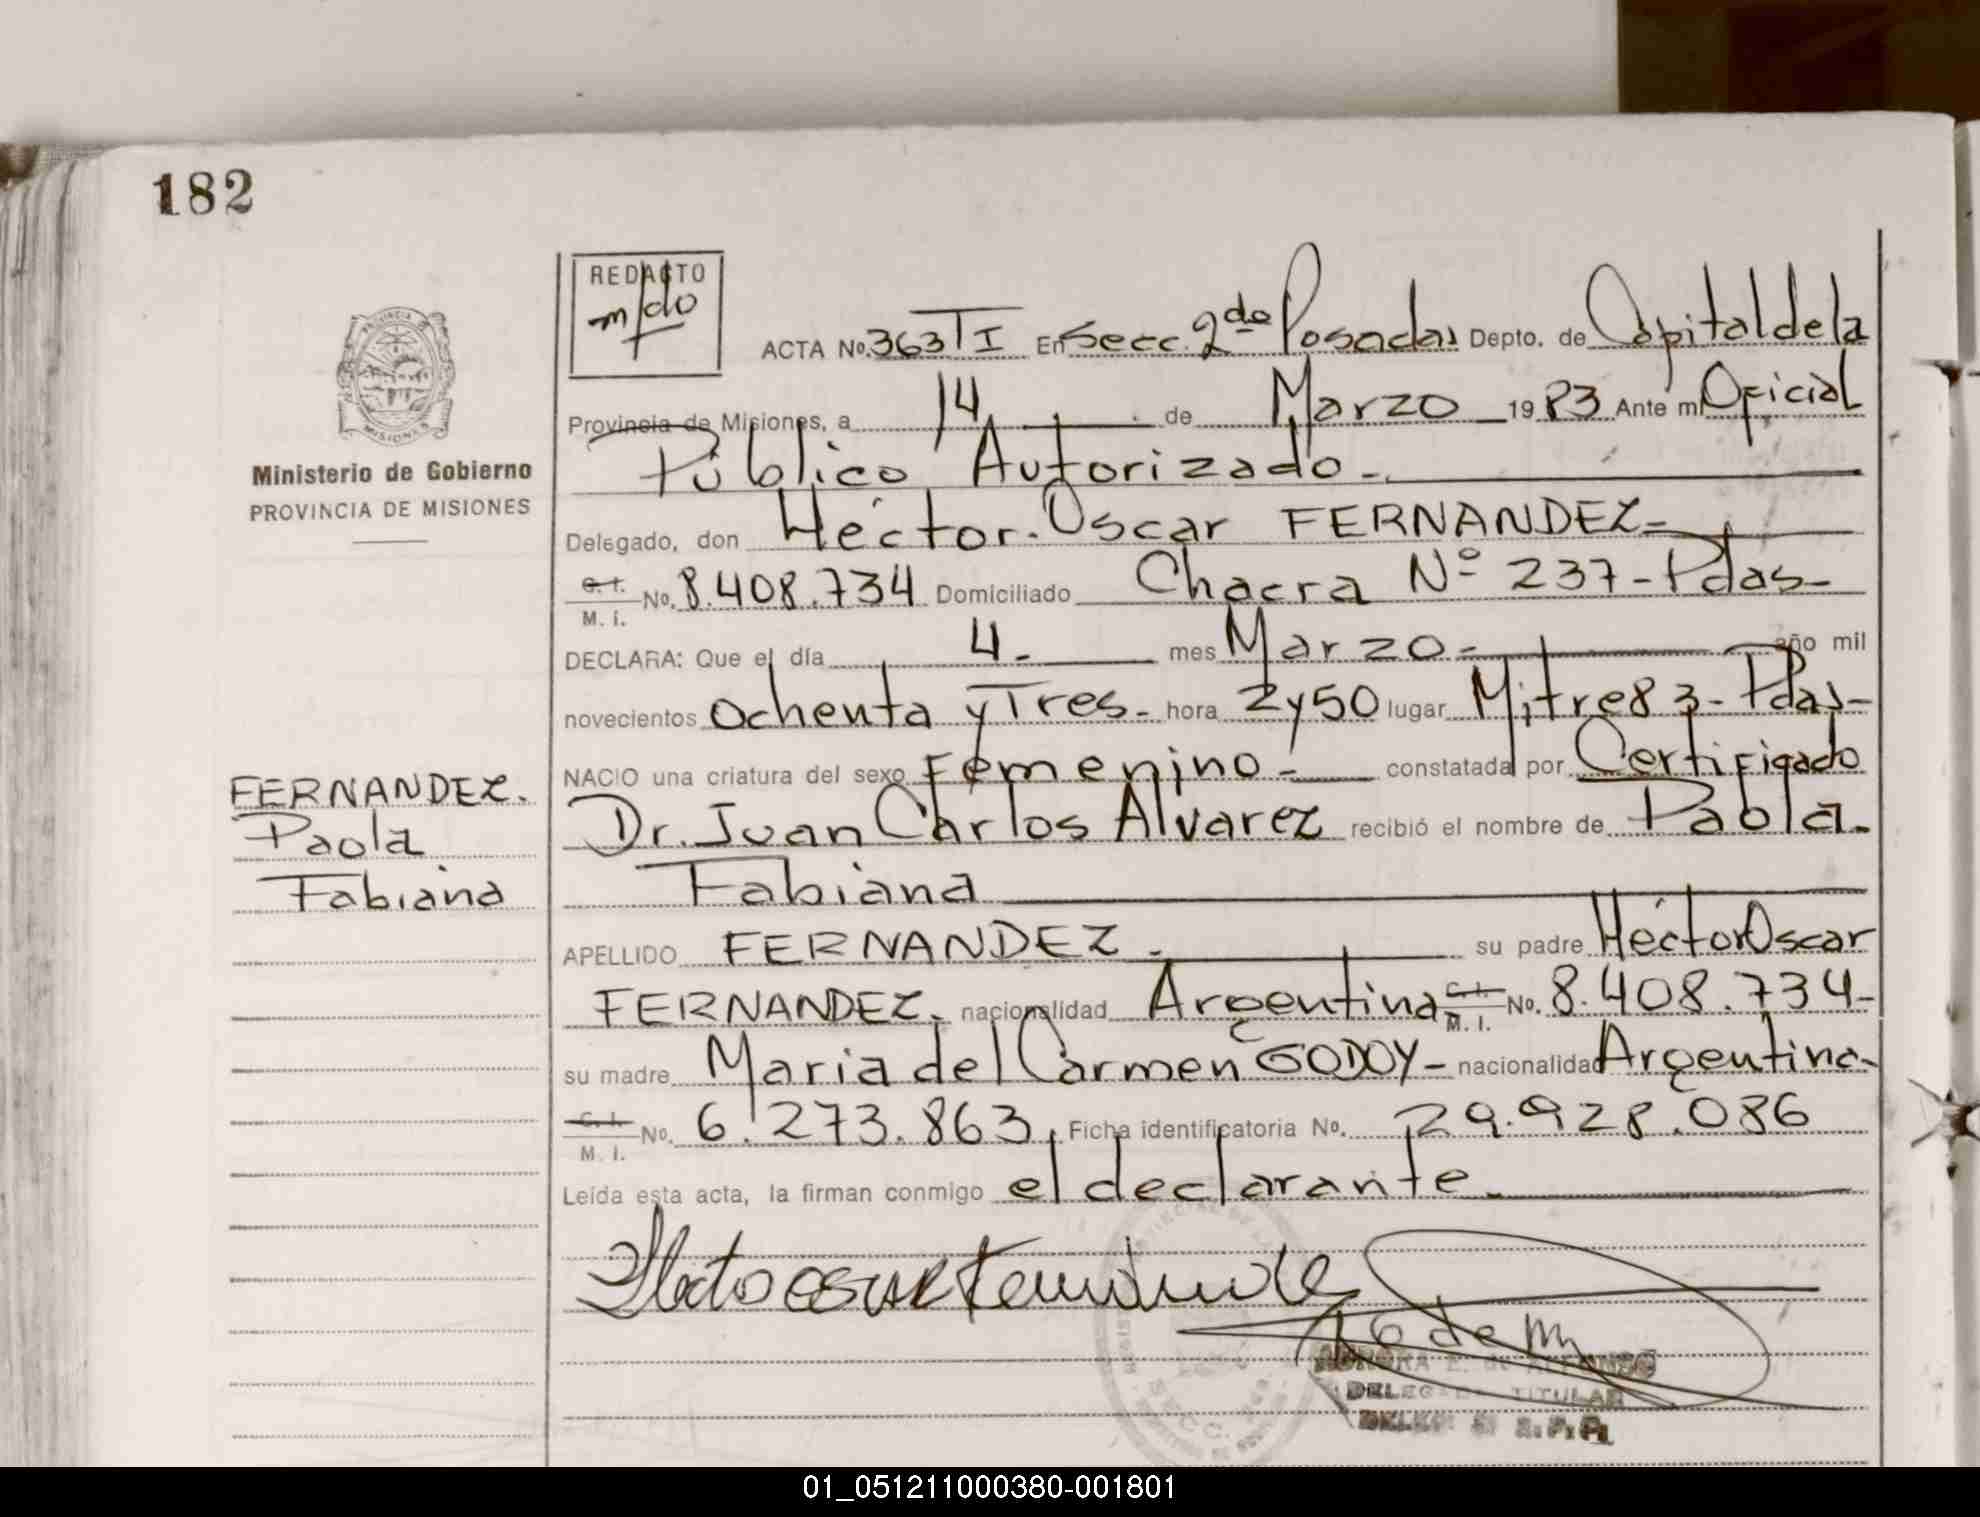 182
REDACTO
m/do
ACTA No. 363 T I En Secc. 2da Posadas Depto. de Capital de la
Provincia de Misiones, a 14 de Marzo 1983 Ante mi Oficial
Público Autorizado-.
Ministerio de Gobierno
PROVINCIA DE MISIONES
Delegado, don Héctor Oscar FERNANDEZ-
C. I. M. I. No. 8.408.734 Domiciliado Chacra Nº 237-Pdas-
DECLARA: Que el día 4- mes Marzo- año mil
novecientos ochenta y Tres- hora 2y50 lugar Mitre 83-Pdas-
NACIO una criatura del sexo Femenino- constatada por Certificado
Dr. Juan Carlos Alvarez recibió el nombre de Paola
Fabiana
FERNANDEZ.
Paola
Fabiana
APELLIDO FERNANDEZ- su padre Héctor Oscar
FERNANDEZ. nacionalidad Argentina C. I. M. I. No. 8.408.734-
su madre Maria del Carmen GODOY- nacionalidad Argentina-
C. I. M. I. No. 6.273.863, Ficha identificatoria No. 29.928.086
Leída esta acta, la firman conmigo el declarante.
Hector oscar Fernandez
DELEGADA TITULAR
01_051211000380-001801